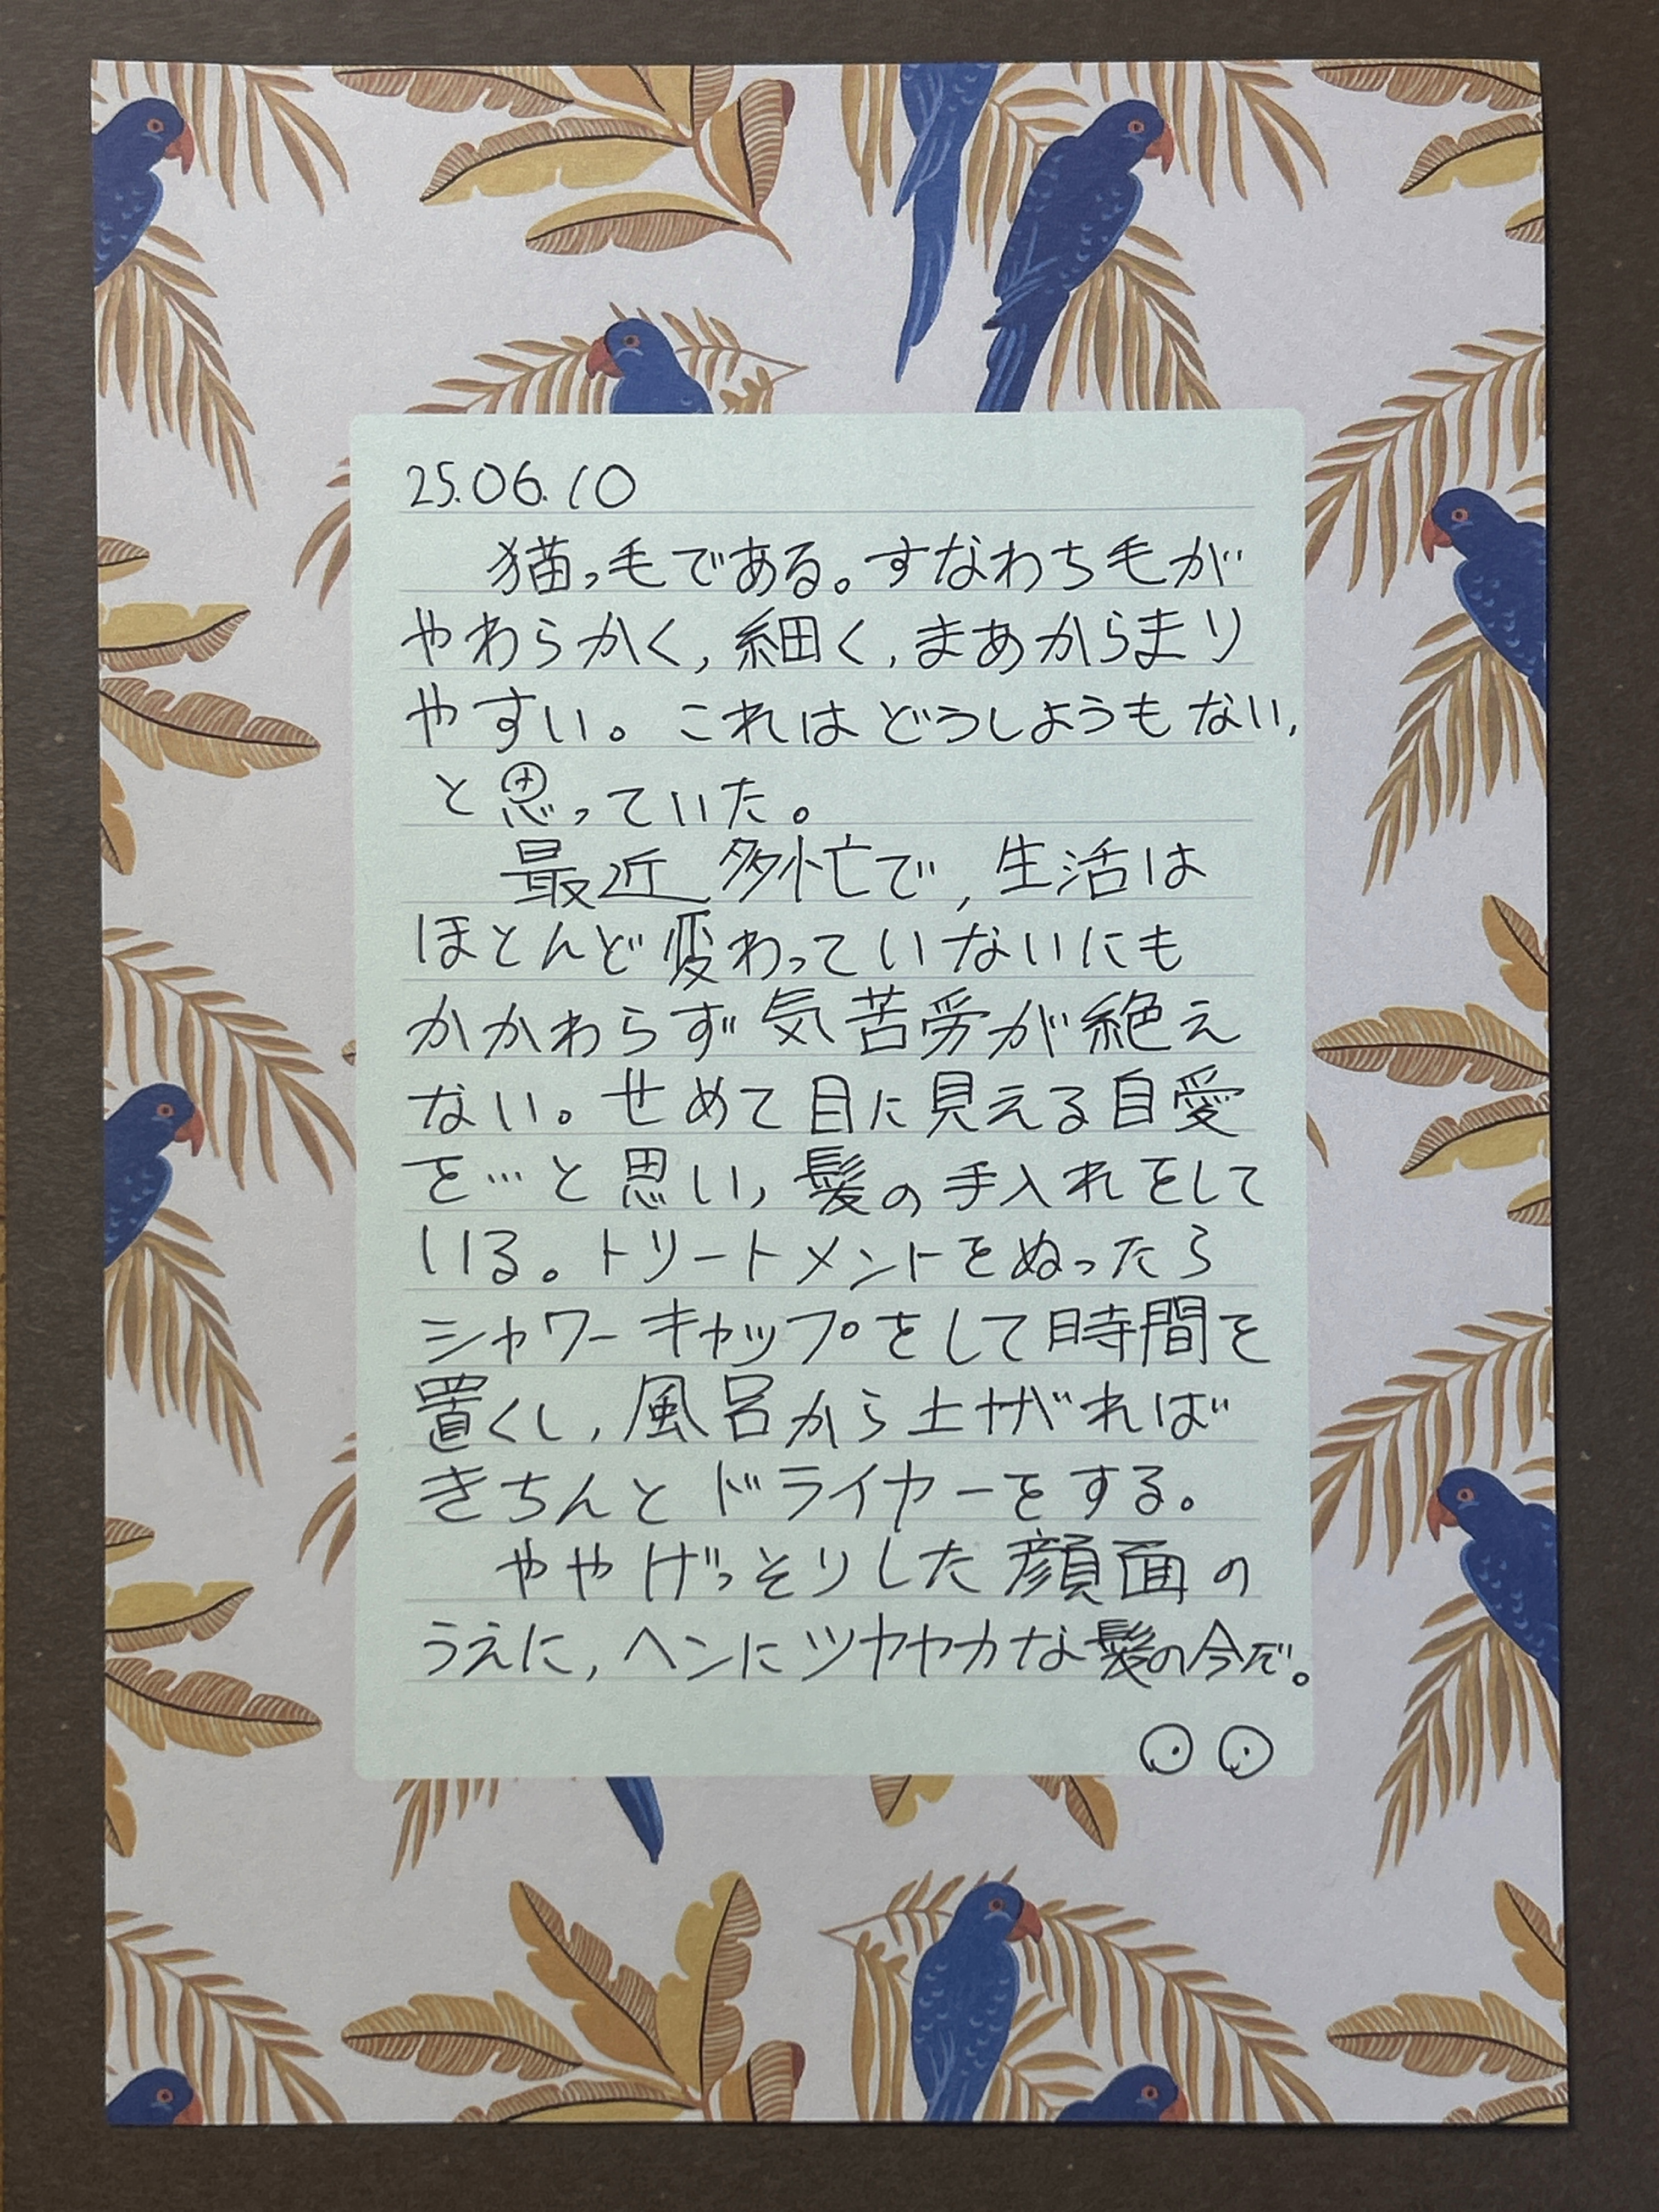 25.06.10
猫っ毛である。すなわち毛が
やわらかく,細く,まあからまり
やすい。これはどうしようもない,
と思っていた。
最近多忙で,生活は
ほとんど変わっていないにも
かかわらず気苦労が絶え
ない。せめて目に見える自愛
を…と思い,髪の手入れをして
いる。トリートメントをぬったら
シャワーキャップをして時間を
置くし,風呂から上がれば
きちんとドライヤーをする。
ややげっそりした顔面の
うえに,ヘンにツヤヤカな髪の今だ。